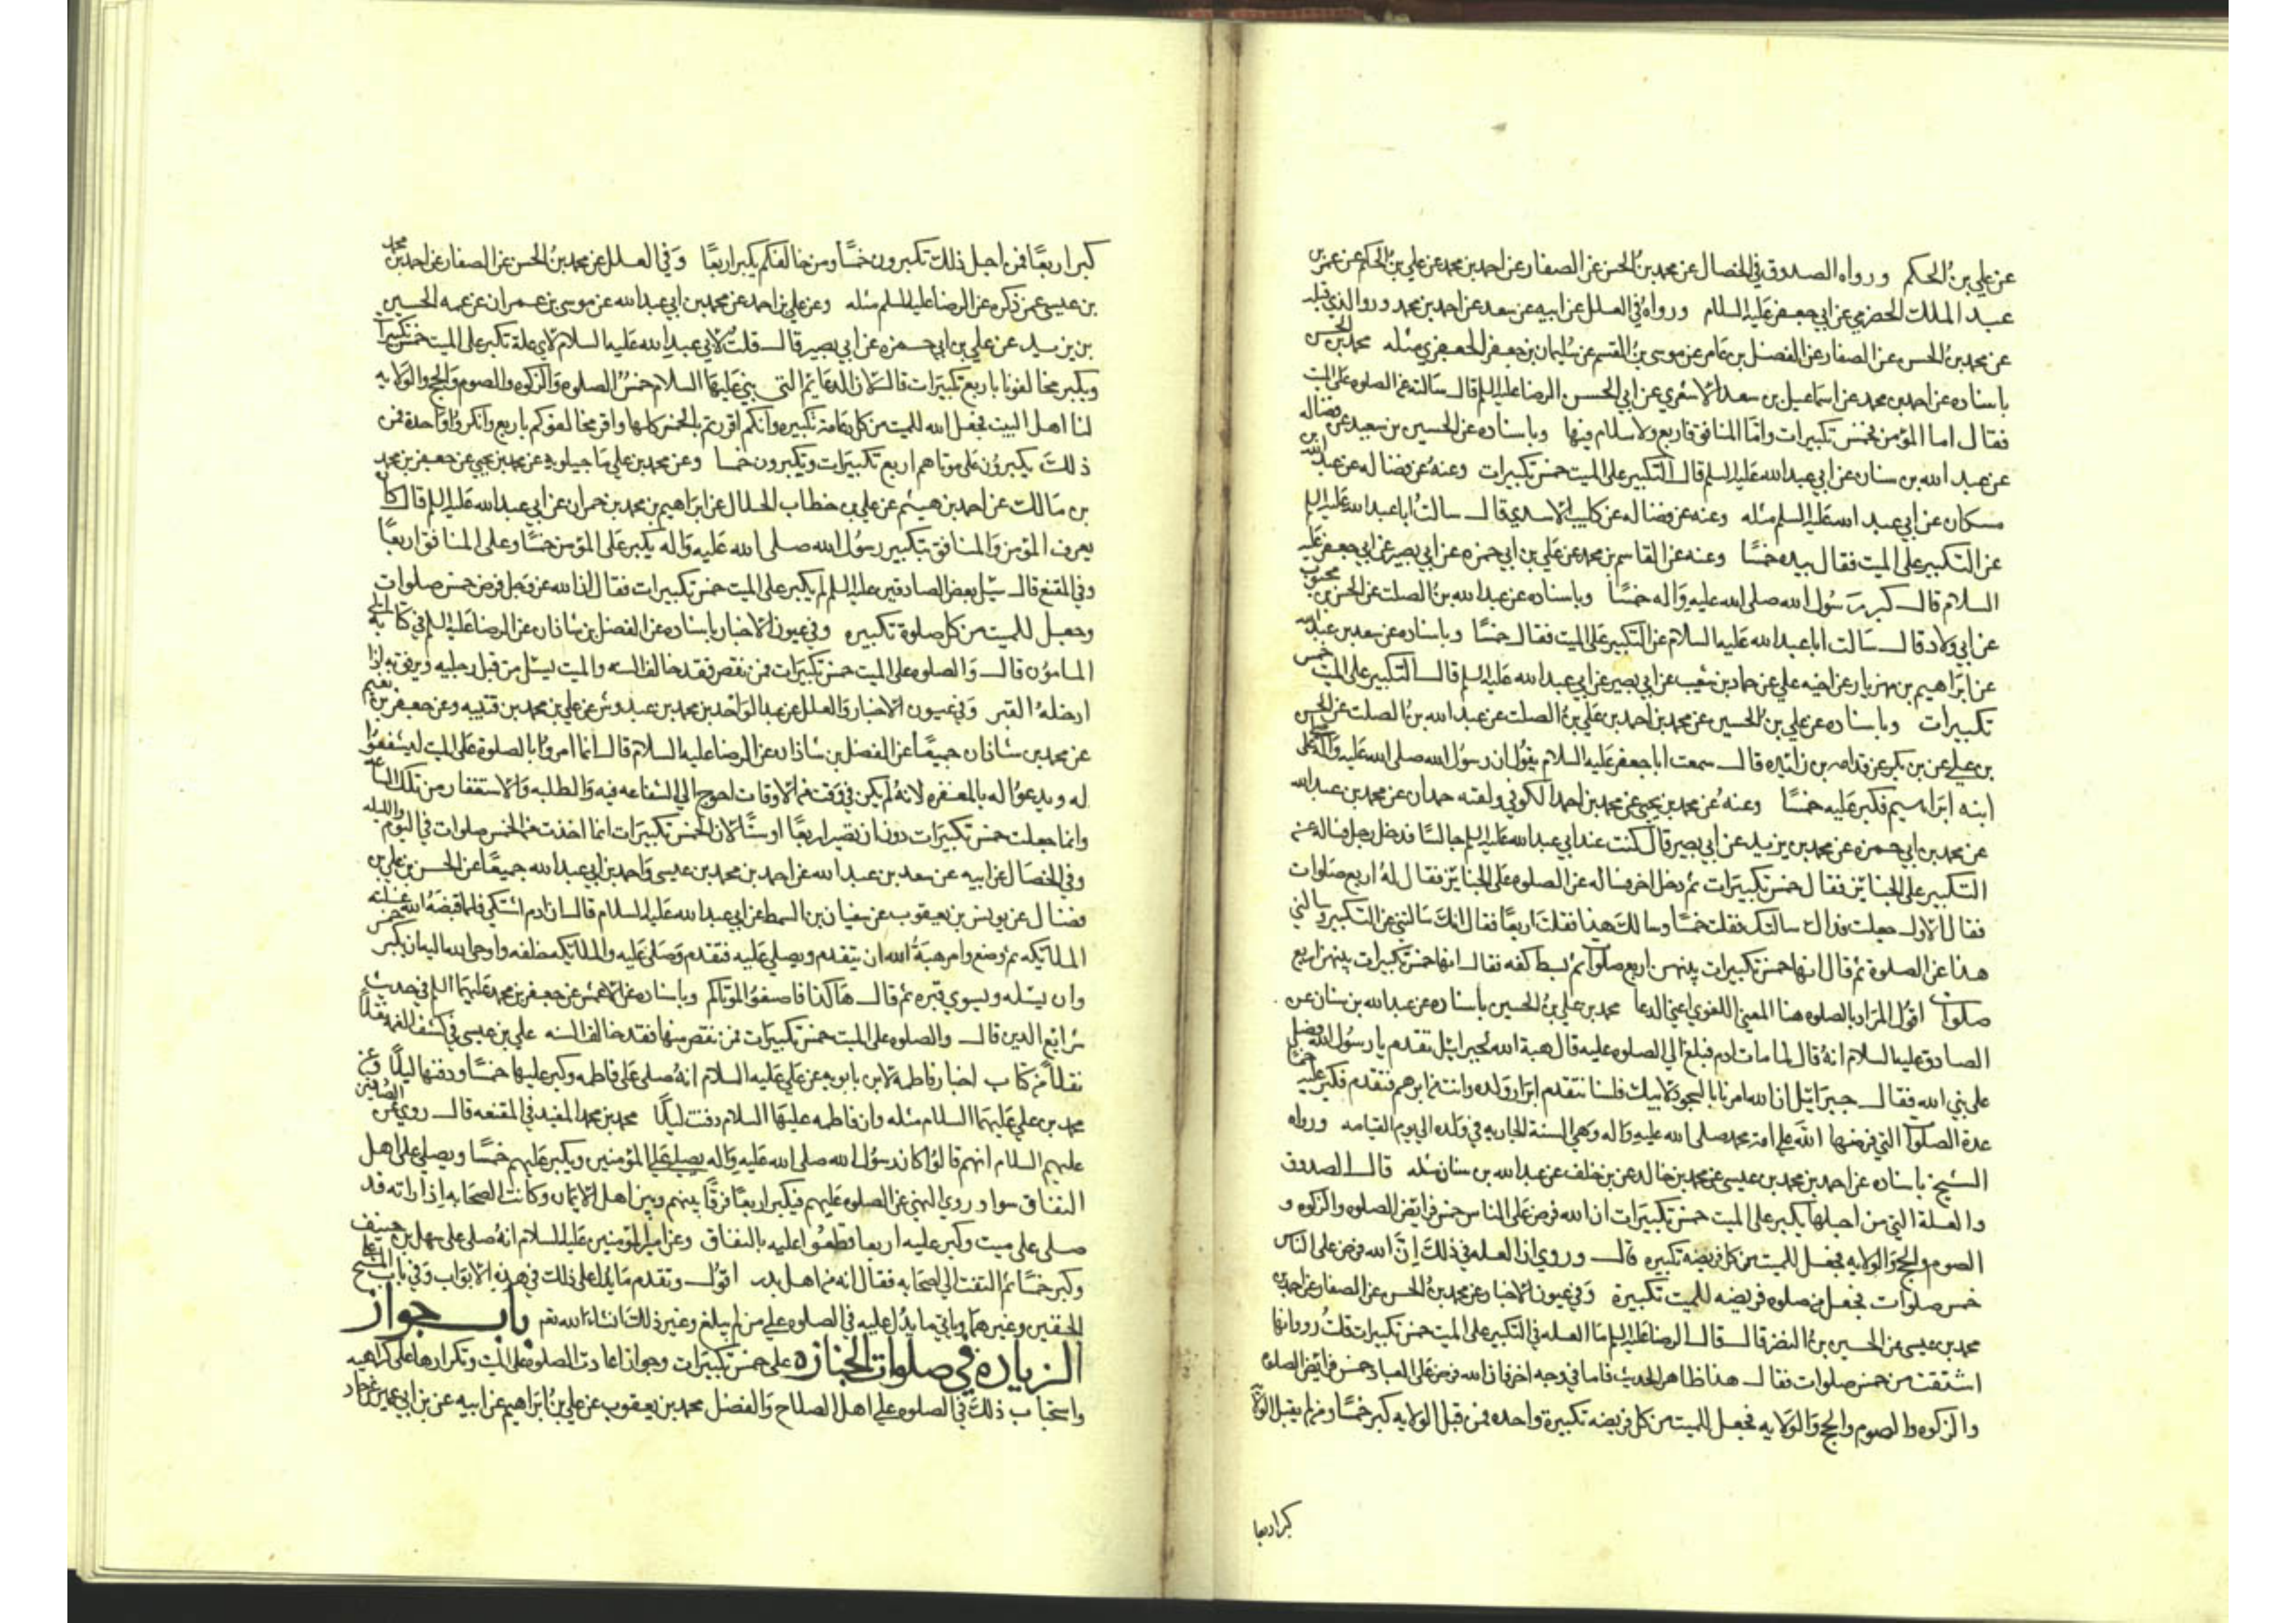 عن علي بن الحكم ورواه الصدوق في الخصال عن محمد بن الحسن عن الصفار عن احمد بن محمد عن علي بن الحكم عن عمر بن
عبد الملك الحضرمي عن ابي جعفر عليه السلام ورواه في العلل عن ابيه عن سعد عن احمد بن محمد وروا الذي قبله
عن محمد بن الحسن عن الصفار عن الفضل بن عامر عن موسى بن القسم عن سليمان بن جعفر الجعفري مثله محمد بن الحسن
باسناده عن احمد بن محمد عن اسماعيل بن سعد الاشعري عن ابي الحسن الرضا عليه السلم قال سالته عن الصلوه على الميت
فقال اما المؤمن فخمس تكبيرات واما المنافق فاربع ولا سلام فيها وباسناده عن الحسين بن سعيد عن فضاله
عن عبد الله بن سنان عن ابي عبد الله عليه السلم قال التكبير على الميت خمس تكبيرات وعنه عن فضاله عن عبد الله بن
مسكان عن ابي عبد الله عليه السلم مثله وعنه عن فضاله عن كليب الاسدي قال سالت ابا عبد الله عليه السلم
عن التكبير على الميت فقال بيده خمسًا وعنه عن القاسم بن محمد عن علي بن ابي حمزه عن ابي بصير عن ابي جعفر عليه
السلام قال كبر رسول الله صلى الله عليه واله خمسًا وباسناده عن عبد الله بن الصلت عن الحسن بن محبوب
عن ابي ولاد قال سالت ابا عبد الله عليه السلام عن التكبير على الميت فقال خمسًا وباسناده عن سعد بن عبد الله
عن ابراهيم بن مهزيار عن اخيه علي عن حماد بن شعيب عن ابي بصير عن ابي عبد الله عليه السلم قال التكبير على الميت خمس
تكبيرات وباسناده عن علي بن الحسين عن محمد بن احمد بن علي بن الصلت عن عبد الله بن الصلت عن الحسن
بن علي عن بن بكير عن قدامه بن زائده قال سمعت ابا جعفر عليه السلام يقول ان رسول الله صلى الله عليه واله صلى على
ابنه ابراهيم فكبر عليه خمسًا وعنه عن محمد بن يحيى عن محمد بن احمد الكوفي ولقبه حمدان عن محمد بن عبد الله
عن محمد بن ابي حمزه عن محمد بن يزيد عن ابي بصير قال كنت عند ابي عبد الله عليه السلم جالسًا فدخل رجل فساله عن
التكبير على الجنايز فقال خمس تكبيرات ثم دخل اخر فساله عن الصلوه على الجنايز فقال له اربع صلوات
فقال الاول جعلت فداك سالتك فقلت خمسًا وسالك هذا فقلت اربعًا فقال انك سالتني عن التكبير وسالني
هذا عن الصلوة ثم قال انها خمس تكبيرات بينهن اربع صلوات ثم بسط كفه فقال انها خمس تكبيرات بينهن اربع
صلوات اقول المراد بالصلوه هنا المعنى اللغوي اعني الدعا محمد بن علي بن الحسين باسناده عن عبد الله بن سنان عن
الصادق عليه السلام انه قال لما مات ادم فبلغ الى الصلوه عليه قال هبة الله لجبرائيل تقدم يا رسول الله فصل
على نبي الله فقال جبرائيل ان الله امرنا بالسجود لابيك فلسنا نتقدم ابرار ولده وانت من ابرهم فتقدم فكبر عليه خمسًا
عدة الصلوات التي فرضها الله على امة محمد صلى الله عليه واله وهي السنة الجاريه في ولده الى يوم القيامه ورواه
الشيخ باسناده عن احمد بن محمد بن عيسى عن محمد بن خالد عن بن خلف عن عبد الله بن سنان مثله قال الصدوق
والعلة التي من اجلها يكبر على الميت خمس تكبيرات ان الله فرض على الناس خمس فرايض الصلوه والزكوه و
الصوم والحج والولايه فجعل للميت من كل فريضه تكبيره قال وروي ان العله في ذلك ان الله فرض على الناس
خمس صلوات فجعل من صلوه فريضه للميت تكبيرة وفي عيون الاخبار عن محمد بن الحسن عن الصفار عن احمد بن
محمد بن عيسى عن الحسين بن النضر قال قال الرضا عليه السلم ما العله في التكبير على الميت خمس تكبيرات قلت رووا انها
اشتقت من خمس صلوات فقال هذا ظاهر الحديث فاما في وجه اخر فان الله فرض على العباد خمس فرايض الصلوه
والزكوه والصوم والحج والولايه فجعل للميت من كل فريضه تكبيرة واحده فمن قبل الولايه كبر خمسًا ومن لم يقبل الولايه
كبر اربعا
كبر اربعًا فمن اجل ذلك تكبرون خمسًا ومن خالفكم يكبر اربعًا وفي العلل عن محمد بن الحسن عن الصفار عن احمد بن محمد
بن عيسى عمن ذكره عن الرضا عليه السلم مثله وعن علي بن احمد عن محمد بن ابي عبد الله عن موسى بن عمران عن عمه الحسين
بن يزيد عن علي بن ابي حمزه عن ابي بصير قال قلت لابي عبد الله عليه السلام لاي علة تكبر على الميت خمس تكبيرات
ويكبر مخالفونا باربع تكبيرات قال لان الدعائم التي بني عليها السلام خمس الصلوه والزكوه والصوم والحج والولايه
لنا اهل البيت فجعل الله للميت من كل دعامة تكبيره وانكم اقررتم بالخمس كلها واقر مخالفوكم باربع وانكروا واحدة فمن
ذلك يكبرون على موتاهم اربع تكبيرات وتكبرون خمسا وعن محمد بن علي ماجيلويه عن محمد بن يحيى عن جعفر بن محمد
بن مالك عن احمد بن هيثم عن علي بن خطاب الحلال عن ابراهيم بن محمد بن حمران عن ابي عبد الله عليه السلم قال كان
يعرف المؤمن والمنافق بتكبير رسول الله صلى الله عليه واله يكبر على المؤمن خمسًا وعلى المنافق اربعًا
وفي المقنع قال سئل بعض الصادقين عليه السلم لم يكبر على الميت خمس تكبيرات فقال ان الله عز وجل فرض خمس صلوات
وجعل للميت من كل صلوة تكبيره وفي عيون الاخبار باسناده عن الفضل بن شاذان عن الرضا عليه السلم في كتابه الى
المامون قال والصلوه على الميت خمس تكبيرات فمن نقص فقد خالف السنه والميت يسل من قبل رجليه ويرفق به اذا
ادخله القبر وفي عيون الاخبار والعلل عن عبد الواحد بن محمد بن عبدوس عن علي بن محمد بن قتيبه وعن جعفر بن نعيم
عن محمد بن شاذان جميعًا عن الفضل بن شاذان عن الرضا عليه السلام قال انما امروا بالصلوة على الميت ليشفعوا
له ويدعوا له بالمغفره لانه لم يكن في وقت من الاوقات احوج الى الشفاعه فيه والطلبه والاستغفار من تلك الساعه
وانما جعلت خمس تكبيرات دون ان تصير اربعًا او ستًا لان الخمس تكبيرات انما اخذت من الخمس صلوات في اليوم والليله
وفي الخصال عن ابيه عن سعد بن عبد الله عن احمد بن محمد بن عيسى واحمد بن ابي عبد الله جميعًا عن الحسن بن علي بن
فضال عن يونس بن يعقوب عن سفيان بن السمط عن ابي عبد الله عليه السلام قال ان ادم اشتكى فلما قبضه الله غسلته
الملائكه ثم وضع وامر هبة الله ان يتقدم ويصلي عليه فتقدم وصلى عليه والملائكه خلفه واوحى الله اليه ان يكبر خمس
وان يسله ويسوي قبره ثم قال هاكذا فاصنعوا بموتاكم وباسناده عن الاعمش عن جعفر بن محمد عليهما السلم في حديث
شرايع الدين قال والصلوه على الميت خمس تكبيرات فمن نقص منها فقد خالف السنه علي بن عيسى في كشف الغمه نقلًا
نقلًا من كتاب اخبار فاطمة لابن بابويه عن علي عليه السلام انه صلى على فاطمه وكبر عليها خمسًا ودفنها ليلًا وعن
محمد بن علي عليهما السلام مثله وان فاطمه عليها السلام دفنت ليلًا محمد بن محمد المفيد في المقنعه قال روي عن الصادقين
عليهم السلام انهم قالوا كان رسول الله صلى الله عليه واله يصلي على المؤمنين ويكبر عليهم خمسًا ويصلي على اهل
النفاق سوا وروي النهي عن الصلوه عليهم فيكبر اربعًا فرقًا بينهم وبين اهل الايمان وكانت الصحابه اذا راته قد
صلى على ميت وكبر عليه اربعا قطعوا عليه بالنفاق وعن امير المؤمنين عليه السلام انه صلى على سهل بن حنيف
وكبر خمسًا ثم التفت الى اصحابه فقال انه من اهل بدر اقول وتقدم ما يدل على ذلك في هذه الابواب وفي باب المسح على
الخفين وغيرهما وياتي ما يدل عليه في الصلوه على من لم يبلغ وغير ذلك انشاء الله تعم باب جواز
الزياده في صلوات الجنازه على خمس تكبيرات وجواز اعادت الصلوه على الميت وتكرارها على كراهيه
واستحباب ذلك في الصلوه على اهل الصلاح والفضل محمد بن يعقوب عن علي بن ابراهيم عن ابيه عن بن ابي عمير عن حماد